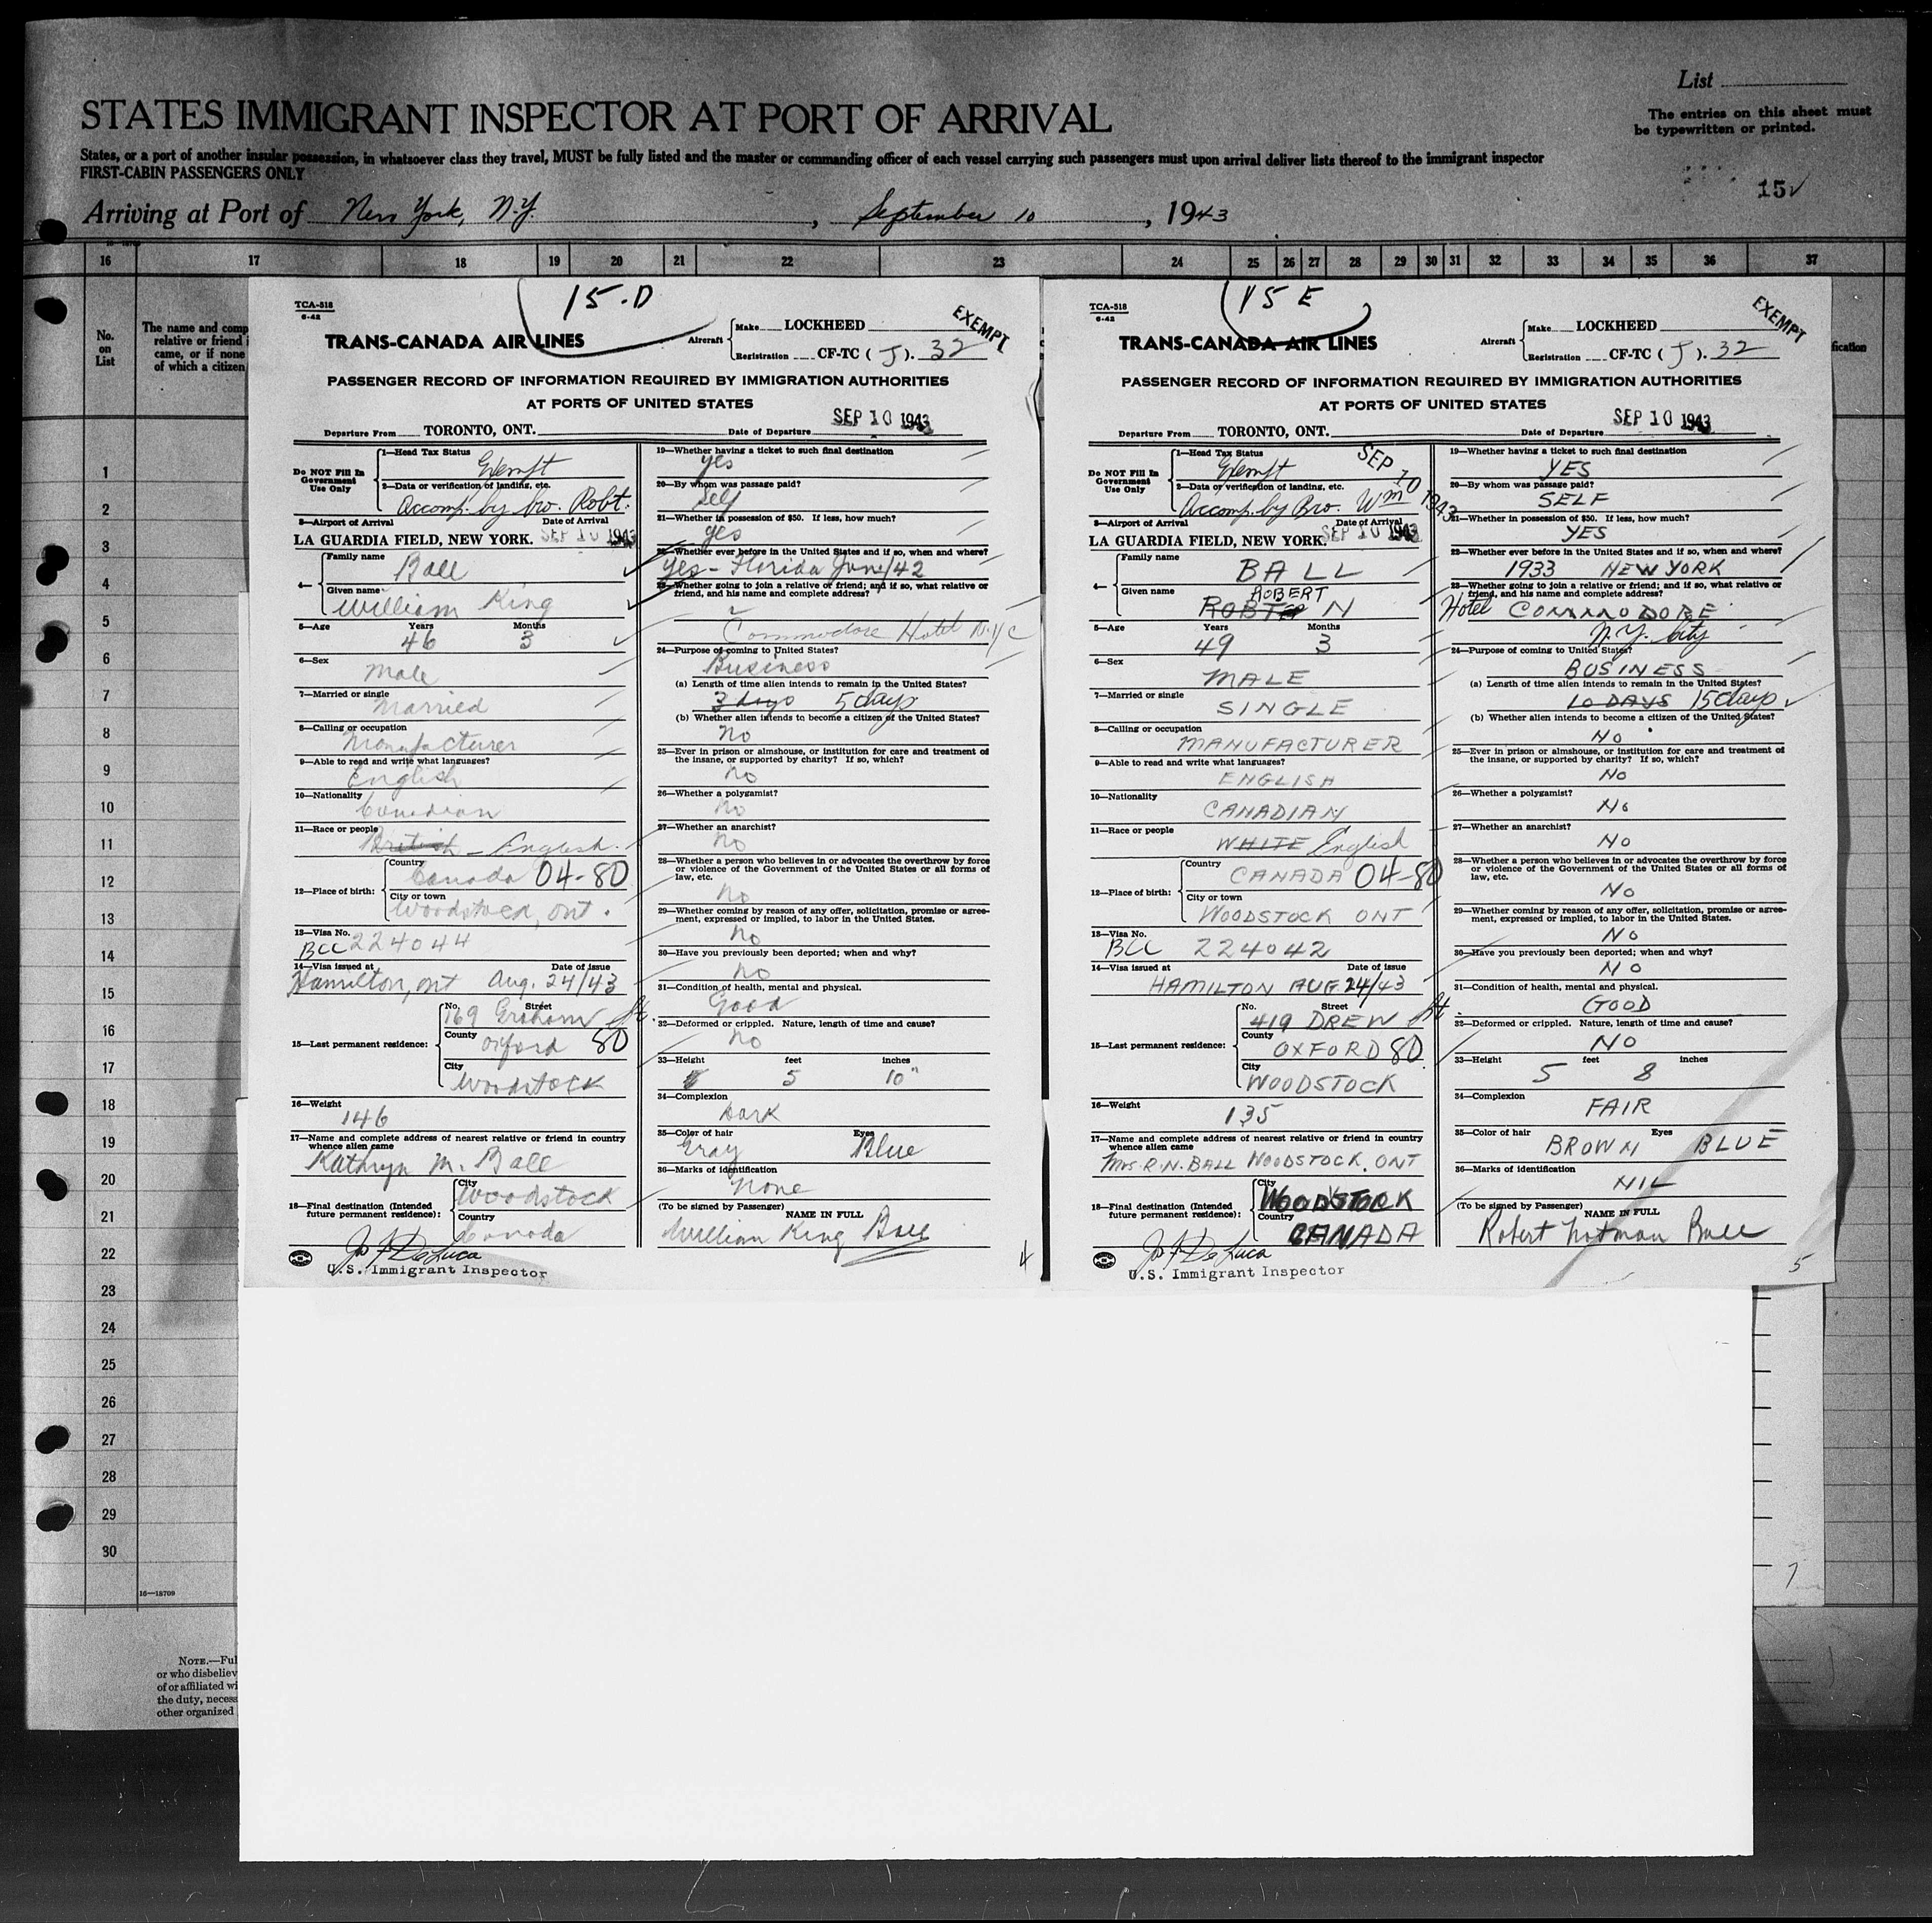 List
STATES IMMIGRANT INSPECTOR AT PORT OF ARRIVAL
The entries on this sheet must
be typewritten or printed.
States, or a port of another insular possession, in whatsoever class they travel, MUST be fully listed and the master or commanding officer of each vessel carrying such passengers must upon arrival deliver lists thereof to the immigrant inspector
FIRST-CABIN PASSENGERS ONLY
15
Arriving at Port of New York, N.Y., September 10, 1943
16 17 18 19 20 21 22 23 24 25 26 27 28 29 30 31 32 33 34 35 36 37
No.
on
List
The name and comp
relative or friend i
came, or if none
of which a citizen
fication
1
2
3
4
5
6
7
8
9
10
11
12
13
14
15
16
17
18
19
20
21
22
23
24
25
26
27
28
29
30
16—18709
NOTE.—Ful
or who disbeliev
of or affiliated wi
the duty, necess
other organized
TCA-518
6-42
15-D
EXEMPT
TRANS-CANADA AIR LINES
Aircraft
Make LOCKHEED
Registration CF-TC ( J ). 32
PASSENGER RECORD OF INFORMATION REQUIRED BY IMMIGRATION AUTHORITIES
AT PORTS OF UNITED STATES
Departure From TORONTO, ONT. Date of Departure SEP 10 1943
Do NOT Fill In
Government
Use Only
1—Head Tax Status
Exempt
2—Data or verification of landing, etc.
Accomp. by bro. Robt.
3—Airport of Arrival Date of Arrival
LA GUARDIA FIELD, NEW YORK. SEP 10 1943
4—
Family name
Ball
Given name
William King
5—Age Years Months
46 3
6—Sex
Male
7—Married or single
Married
8—Calling or occupation
Manufacturer
9—Able to read and write what languages?
English
10—Nationality
Canadian
11—Race or people
British - English.
12—Place of birth:
Country
Canada 04-80
City or town
Woodstock, Ont.
13—Visa No.
BCC 224044
14—Visa issued at Date of issue
Hamilton, Ont Aug. 24/43
15—Last permanent residence:
No. Street
169 Graham St.
County
Oxford 80
City
Woodstock
16—Weight
146
17—Name and complete address of nearest relative or friend in country
whence alien came
Kathryn M. Ball
18—Final destination (Intended
future permanent residence):
City
Woodstock
Country
Canada
Jos F DeLuca
U.S. Immigrant Inspector
19—Whether having a ticket to such final destination
yes
20—By whom was passage paid?
self
21—Whether in possession of $50. If less, how much?
yes
22—Whether ever before in the United States and if so, when and where?
Yes - Florida June/42
23—Whether going to join a relative or friend; and if so, what relative or
friend, and his name and complete address?
Commodore Hotel N.Y.C
24—Purpose of coming to United States?
Business
(a) Length of time alien intends to remain in the United States?
3 days 5 days
(b) Whether alien intends to become a citizen of the United States?
No
25—Ever in prison or almshouse, or institution for care and treatment of
the insane, or supported by charity? If so, which?
No
26—Whether a polygamist?
No
27—Whether an anarchist?
No
28—Whether a person who believes in or advocates the overthrow by force
or violence of the Government of the United States or all forms of
law, etc.
No
29—Whether coming by reason of any offer, solicitation, promise or agree-
ment, expressed or implied, to labor in the United States.
No
30—Have you previously been deported; when and why?
No
31—Condition of health, mental and physical.
Good
32—Deformed or crippled. Nature, length of time and cause?
No
33—Height feet inches
5 10"
34—Complexion
Dark
35—Color of hair Eyes
Gray Blue
36—Marks of identification
None
(To be signed by Passenger) NAME IN FULL
William King Ball
4
TCA-518
6-42
15 E
EXEMPT
TRANS-CANADA AIR LINES
Aircraft
Make LOCKHEED
Registration CF-TC ( J ). 32
PASSENGER RECORD OF INFORMATION REQUIRED BY IMMIGRATION AUTHORITIES
AT PORTS OF UNITED STATES
Departure From TORONTO, ONT. Date of Departure SEP 10 1943
Do NOT Fill In
Government
Use Only
1—Head Tax Status
Exempt
SEP 10 1943
2—Data or verification of landing, etc.
Accomp. by Bro. Wm
3—Airport of Arrival Date of Arrival
LA GUARDIA FIELD, NEW YORK. SEP 10 1943
4—
Family name
BALL
Given name
ROBERT
ROBT N
5—Age Years Months
49 3
6—Sex
MALE
7—Married or single
SINGLE
8—Calling or occupation
MANUFACTURER
9—Able to read and write what languages?
ENGLISH
10—Nationality
CANADIAN
11—Race or people
WHITE English
12—Place of birth:
Country
CANADA 04-80
City or town
WOODSTOCK ONT
13—Visa No.
BCC 224042
14—Visa issued at Date of issue
HAMILTON AUG 24/43
15—Last permanent residence:
No. Street
419 DREW St.
County
OXFORD 80
City
WOODSTOCK
16—Weight
135
17—Name and complete address of nearest relative or friend in country
whence alien came
MRS. R.N. BALL WOODSTOCK, ONT
18—Final destination (Intended
future permanent residence):
City
WOODSTOCK
Country
CANADA
Jos F DeLuca
U.S. Immigrant Inspector
19—Whether having a ticket to such final destination
YES
20—By whom was passage paid?
SELF
21—Whether in possession of $50. If less, how much?
YES
22—Whether ever before in the United States and if so, when and where?
1933 NEW YORK
23—Whether going to join a relative or friend; and if so, what relative or
friend, and his name and complete address?
Hotel COMMODORE
N.Y. City
24—Purpose of coming to United States?
BUSINESS
(a) Length of time alien intends to remain in the United States?
10 DAYS 15 days
(b) Whether alien intends to become a citizen of the United States?
NO
25—Ever in prison or almshouse, or institution for care and treatment of
the insane, or supported by charity? If so, which?
NO
26—Whether a polygamist?
NO
27—Whether an anarchist?
NO
28—Whether a person who believes in or advocates the overthrow by force
or violence of the Government of the United States or all forms of
law, etc.
NO
29—Whether coming by reason of any offer, solicitation, promise or agree-
ment, expressed or implied, to labor in the United States.
NO
30—Have you previously been deported; when and why?
NO
31—Condition of health, mental and physical.
GOOD
32—Deformed or crippled. Nature, length of time and cause?
NO
33—Height feet inches
5 8
34—Complexion
FAIR
35—Color of hair Eyes
BROWN BLUE
36—Marks of identification
NIL
(To be signed by Passenger) NAME IN FULL
Robert Notman Ball
5
7